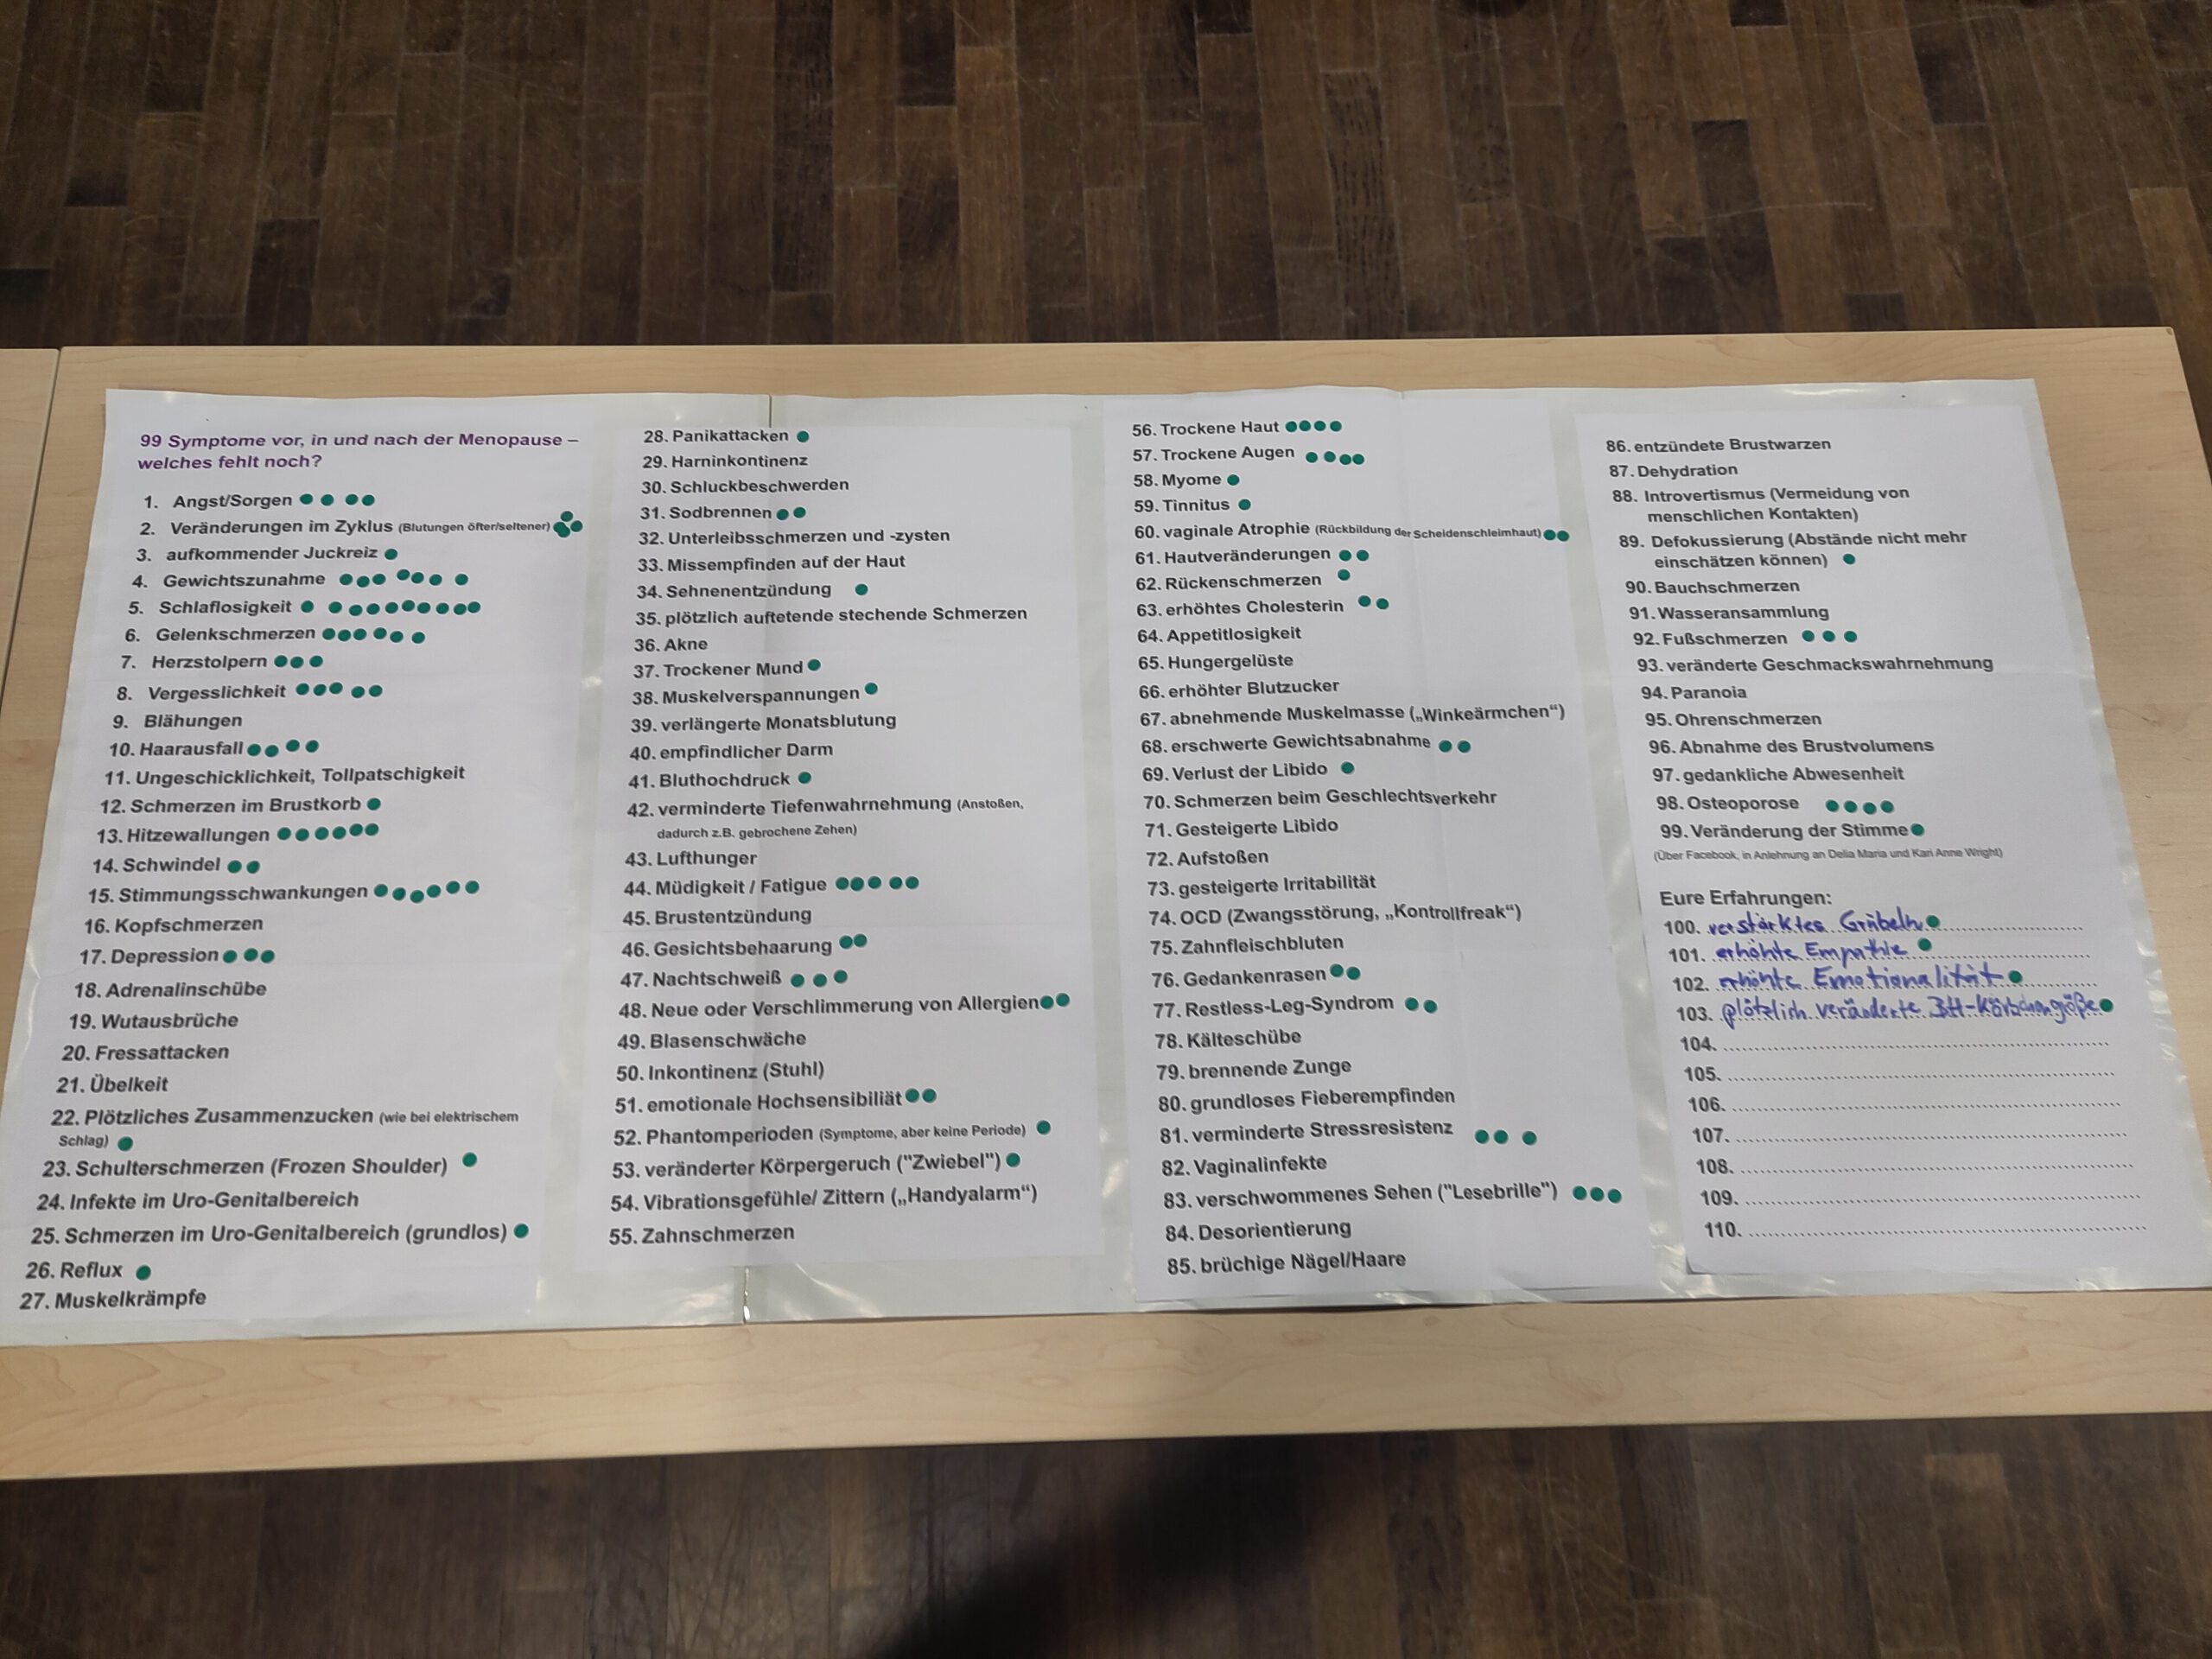 99 Symptome vor, in und nach der Menopause –
welches fehlt noch?
1. Angst/Sorgen
2. Veränderungen im Zyklus (Blutungen öfter/seltener)
3. aufkommender Juckreiz
4. Gewichtszunahme
5. Schlaflosigkeit
6. Gelenkschmerzen
7. Herzstolpern
8. Vergesslichkeit
9. Blähungen
10. Haarausfall
11. Ungeschicklichkeit, Tollpatschigkeit
12. Schmerzen im Brustkorb
13. Hitzewallungen
14. Schwindel
15. Stimmungsschwankungen
16. Kopfschmerzen
17. Depression
18. Adrenalinschübe
19. Wutausbrüche
20. Fressattacken
21. Übelkeit
22. Plötzliches Zusammenzucken (wie bei elektrischem
Schlag)
23. Schulterschmerzen (Frozen Shoulder)
24. Infekte im Uro-Genitalbereich
25. Schmerzen im Uro-Genitalbereich (grundlos)
26. Reflux
27. Muskelkrämpfe
28. Panikattacken
29. Harninkontinenz
30. Schluckbeschwerden
31. Sodbrennen
32. Unterleibsschmerzen und -zysten
33. Missempfinden auf der Haut
34. Sehnenentzündung
35. plötzlich auftetende stechende Schmerzen
36. Akne
37. Trockener Mund
38. Muskelverspannungen
39. verlängerte Monatsblutung
40. empfindlicher Darm
41. Bluthochdruck
42. verminderte Tiefenwahrnehmung (Anstoßen,
dadurch z.B. gebrochene Zehen)
43. Lufthunger
44. Müdigkeit / Fatigue
45. Brustentzündung
46. Gesichtsbehaarung
47. Nachtschweiß
48. Neue oder Verschlimmerung von Allergien
49. Blasenschwäche
50. Inkontinenz (Stuhl)
51. emotionale Hochsensibiliät
52. Phantomperioden (Symptome, aber keine Periode)
53. veränderter Körpergeruch ("Zwiebel")
54. Vibrationsgefühle/ Zittern („Handyalarm“)
55. Zahnschmerzen
56. Trockene Haut
57. Trockene Augen
58. Myome
59. Tinnitus
60. vaginale Atrophie (Rückbildung der Scheidenschleimhaut)
61. Hautveränderungen
62. Rückenschmerzen
63. erhöhtes Cholesterin
64. Appetitlosigkeit
65. Hungergelüste
66. erhöhter Blutzucker
67. abnehmende Muskelmasse („Winkeärmchen“)
68. erschwerte Gewichtsabnahme
69. Verlust der Libido
70. Schmerzen beim Geschlechtsverkehr
71. Gesteigerte Libido
72. Aufstoßen
73. gesteigerte Irritabilität
74. OCD (Zwangsstörung, „Kontrollfreak“)
75. Zahnfleischbluten
76. Gedankenrasen
77. Restless-Leg-Syndrom
78. Kälteschübe
79. brennende Zunge
80. grundloses Fieberempfinden
81. verminderte Stressresistenz
82. Vaginalinfekte
83. verschwommenes Sehen ("Lesebrille")
84. Desorientierung
85. brüchige Nägel/Haare
86. entzündete Brustwarzen
87. Dehydration
88. Introvertismus (Vermeidung von
menschlichen Kontakten)
89. Defokussierung (Abstände nicht mehr
einschätzen können)
90. Bauchschmerzen
91. Wasseransammlung
92. Fußschmerzen
93. veränderte Geschmackswahrnehmung
94. Paranoia
95. Ohrenschmerzen
96. Abnahme des Brustvolumens
97. gedankliche Abwesenheit
98. Osteoporose
99. Veränderung der Stimme
(Über Facebook, in Anlehnung an Delia Maria und Kari Anne Wright)
Eure Erfahrungen:
100. verstärktes Grübeln
101. erhöhte Empathie
102. erhöhte Emotionalität
103. plötzlich veränderte BH-Körbchengröße
104.
105.
106.
107.
108.
109.
110.